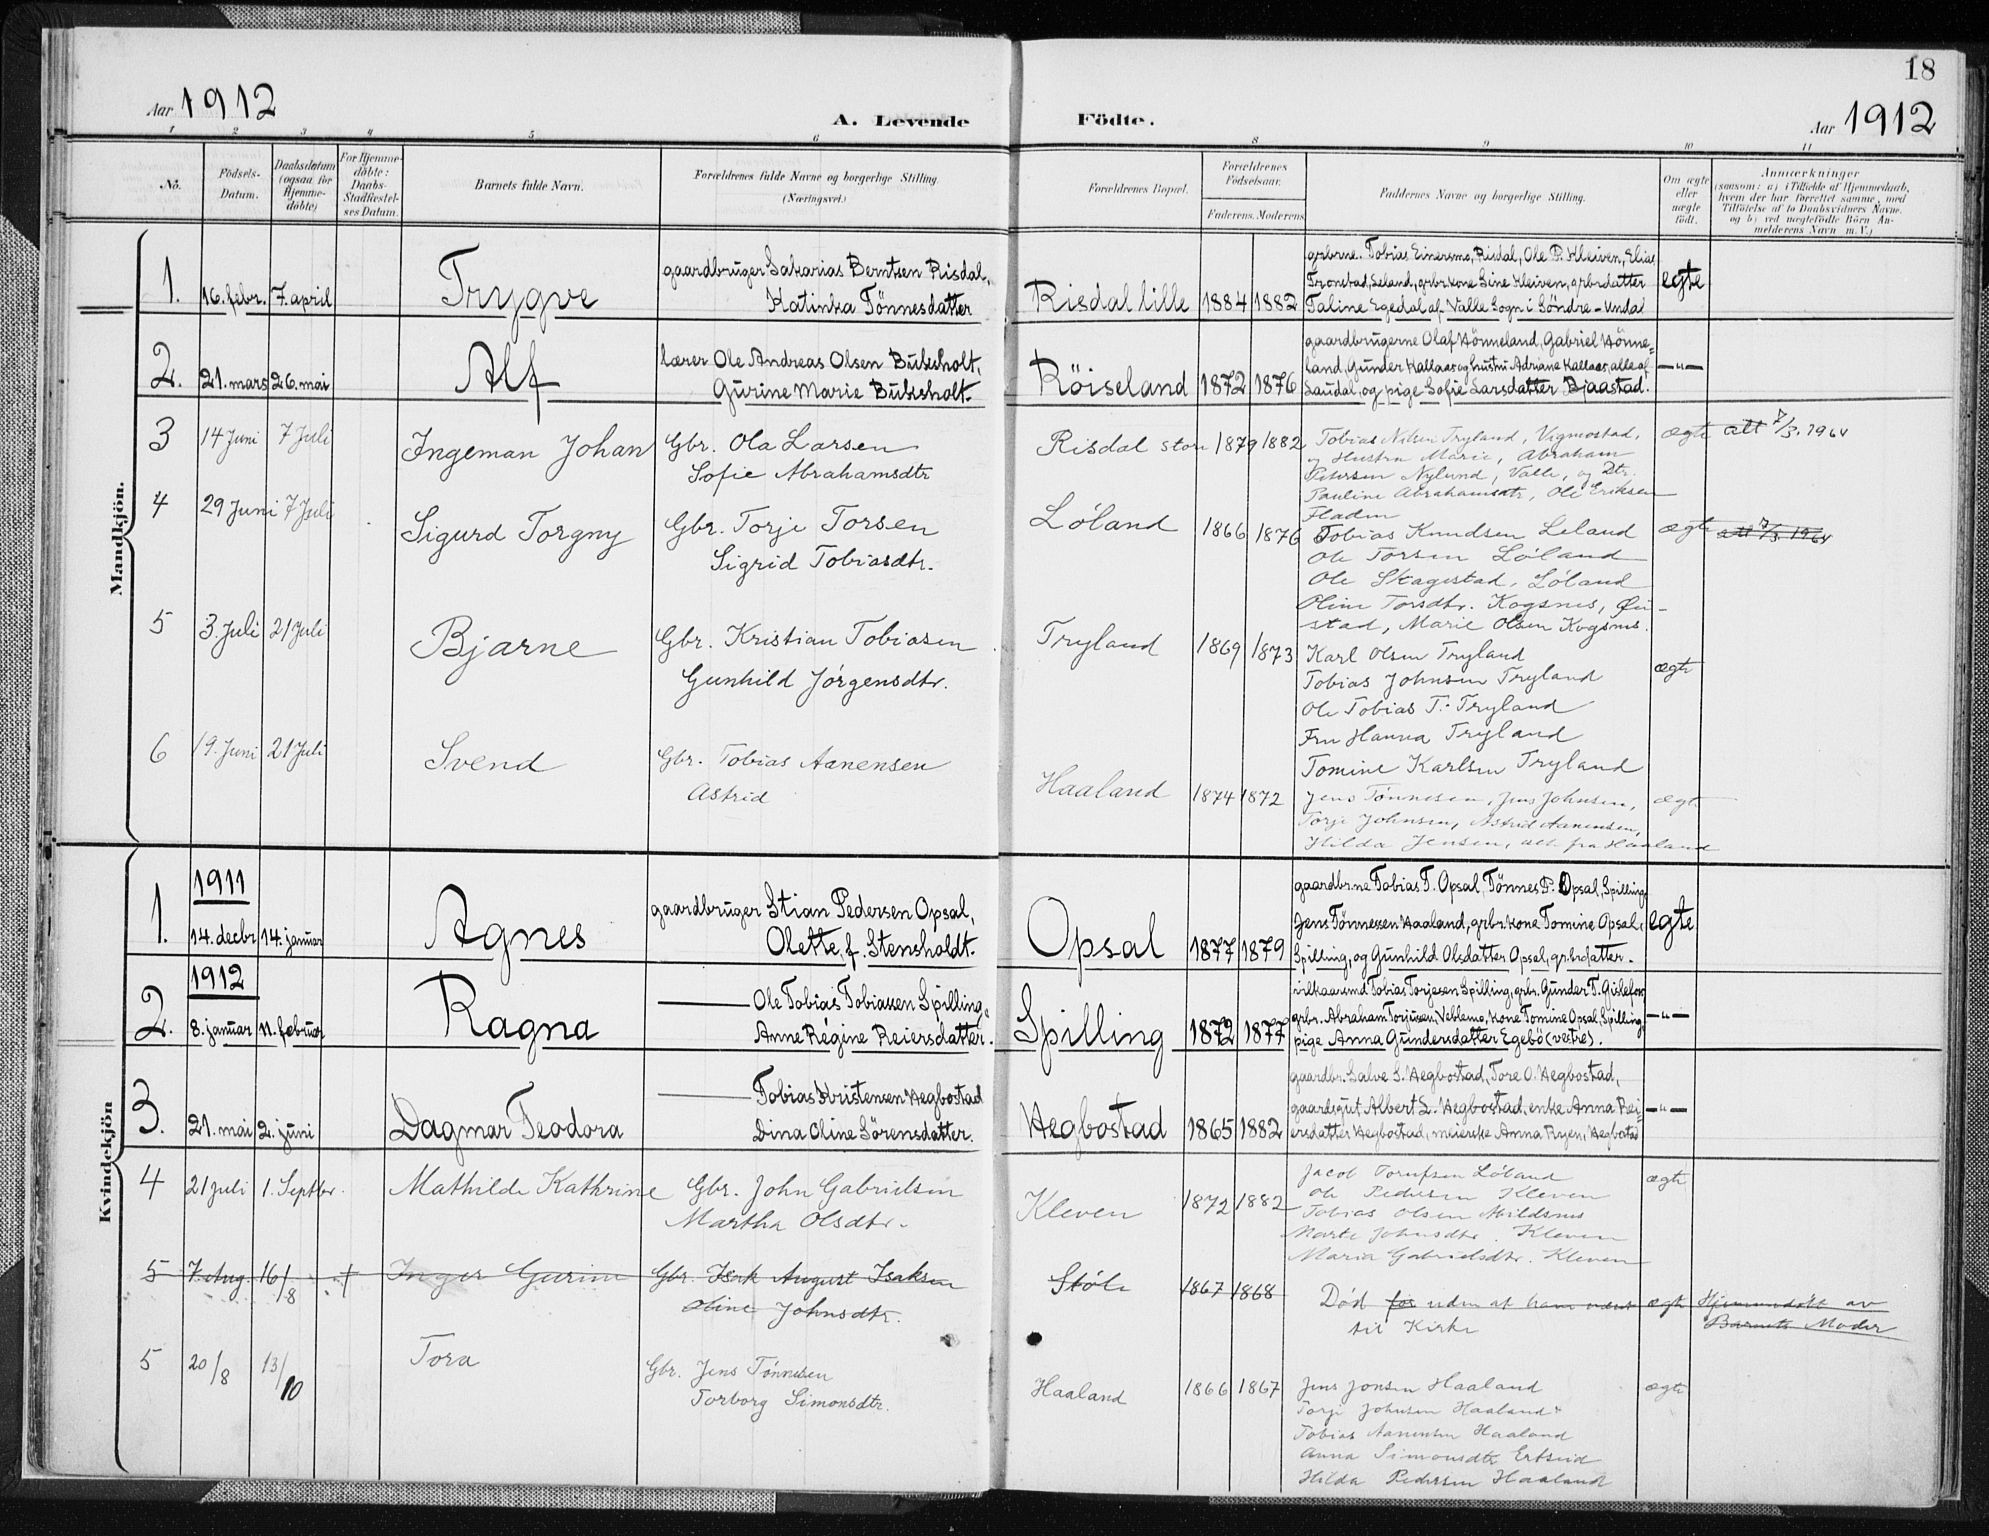 18
Aar 1912
A. Levende Födte.
Aar 1912
1 2 3 4 5 6 8 9 10 11
No.
Födsels-Datum.
Daabsdatum (ogsaa for Hjemme-döbte)
For Hjemme-döbte: Daabs-Stadfæstel-ses Datum.
Barnets fulde Navn.
Forældrenes fulde Navne og borgerlige Stilling (Næringsvei.)
Forældrenes Bopæl.
Forældrenes Födselsaar.
Faderens. Moderens
Faddernes Navne og borgerlige Stilling.
Om ægte eller uægte födt.
Anmærkninger
(saasom: a) i Tilfælde af Hjemmedaab,
hvem der har forrettet samme, med
Tilföielse af to Daabsvidners Navne,
og b) ved uægtefödte Börn An-
melderens Navn m. V.)
Mandkjön.
1. 16. febr. 7. april Trygve
gaardbruger Sakarias Berntsen Risdal,
Katinka Tönnesdatter
Risdal lille 1884 1882
grbrne. Tobias Einersmo, Risdal, Ole P. Kleiven, Elias
Tronstad, Leland, grbr.kone Sine Kleiven, grbrdatter
Taline Egedal af Valle Sogn i Söndre-Undal
egte
2. 21. mars 26. mai Alf
lærer Ole Andreas Olsen Buksholt,
Gurine Marie Buksholt.
Röiseland 1872 1876
gaardbrugerne Olaf Hönneland, Gabriel Hönne=
land, Gunder Kallaas og hustru Adriane Kallaas, alle af
Laudal, og pige Sofie Larsdatter Bjaastad.
-"-
3 14 Juni 7 Juli Ingeman Johan
Gbr. Ola Larsen
Sofie Abrahamsdtr
Risdal store 1879 1882
Tobias Nilsen Tryland, Vigmostad,
og Hustru Marie, Abraham
Petersen Nylund, Valle, og Dtr.
Pauline Abrahamsdtr, Ole Eriksen
Fladen
ægte att 7/3. 1964
4 29 Juni 7 Juli Sigurd Torgny
Gbr. Torje Torsen
Sigrid Tobiasdtr.
Løland 1866 1876
Tobias Knudsen Leland
Ole Torsen Løland
Ole Skagestad, Løland
Oline Torsdtr. Kogsnes, Øi-
stad, Marie Olsen Kogsnes.
ægte att 7/3 1964
5 3. Juli 21 Juli Bjarne
Gbr. Kristian Tobiasen
Gunhild Jørgensdtr.
Tryland 1869 1873
Karl Olsen Tryland
Tobias Johnsen Tryland
Ole Tobias T. Tryland
Fru Hanna Tryland
Tomine Karlsen Tryland
ægte
6 19. Juni 21 Juli Svend
Gbr. Tobias Aanensen
Astrid
Haaland 1874 1872
Jens Tønnesen, Jens Johnsen,
Torje Johnsen, Astrid Aanensen,
Hilda Jensen, alle fra Haaland
ægte
Kvindekjön
1911
1. 14. decbr. 14. januar Agnes
gaardbruger Stian Pedersen Opsal,
Olette, f. Stensholdt.
Opsal 1877 1879
gaardbr.ne Tobias T. Opsal, Tönnes P. Opsal, Spilling,
Jens Tönnessen Haaland, grbr.kone Tomine Opsal,
Spilling, og Gunhild Olsdatter Opsal, grbrdatter.
egte
1912
2. 8. januar 11. februar Ragna
— Ole Tobias Tobiassen Spilling,
Anne Régine Reiersdatter.
Spilling 1872 1877
vilkaarsmd Tobias Torjesen Spilling, grbr. Gunder T. Gislefoss,
grbr. Abraham Torjusen, Veblemo, kone Tomine Opsal, Spilling,
pige Anna Gundersdatter Egebö (vestre).
-"-
3. 21. mai 2. juni Dagmar Teodora
— Tobias Kristensen Hegbostad
Dina Oline Sörensdatter.
Hegbostad 1865 1882
gaardbr. Salve S. Hegbostad, Tore O. Hegbostad,
gaardsgut Albert L. Hegbostad, enke Anna Rei-
ersdatter Hegbostad, meierske Anna Ryen, Hegbostad
-"-
4 21 Juli 1. Septbr. Mathilde Kathrine
Gbr. John Gabrielsen
Martha Olsdtr.
Kleven 1872 1882
Jacob Løland
Ole Pedersen Kleven
Tobias Olsen Mildsnes
Marte Johnsdtr. Kleven
Maria Gabrielsdtr. Kleven
ægte
5 7. Aug. 16/8 † Inger Gurine
Gbr. Isak August Isaksen
Oline Johnsdtr.
Støle 1867 1868
Død før uden at have været
til Kirke
ægte Hjemmedøbt av
Barnets Moder
5 20/8 13/10 Tora
Gbr. Jens Tønnesen
Torborg Simonsdtr.
Haaland 1866 1867
Jens Jonsen Haaland
Torje Johnsen Haaland
Tobias Aanensen Haaland
Anna Simonsdtr Ertseid
Hilda Pedersen Haaland
ægte